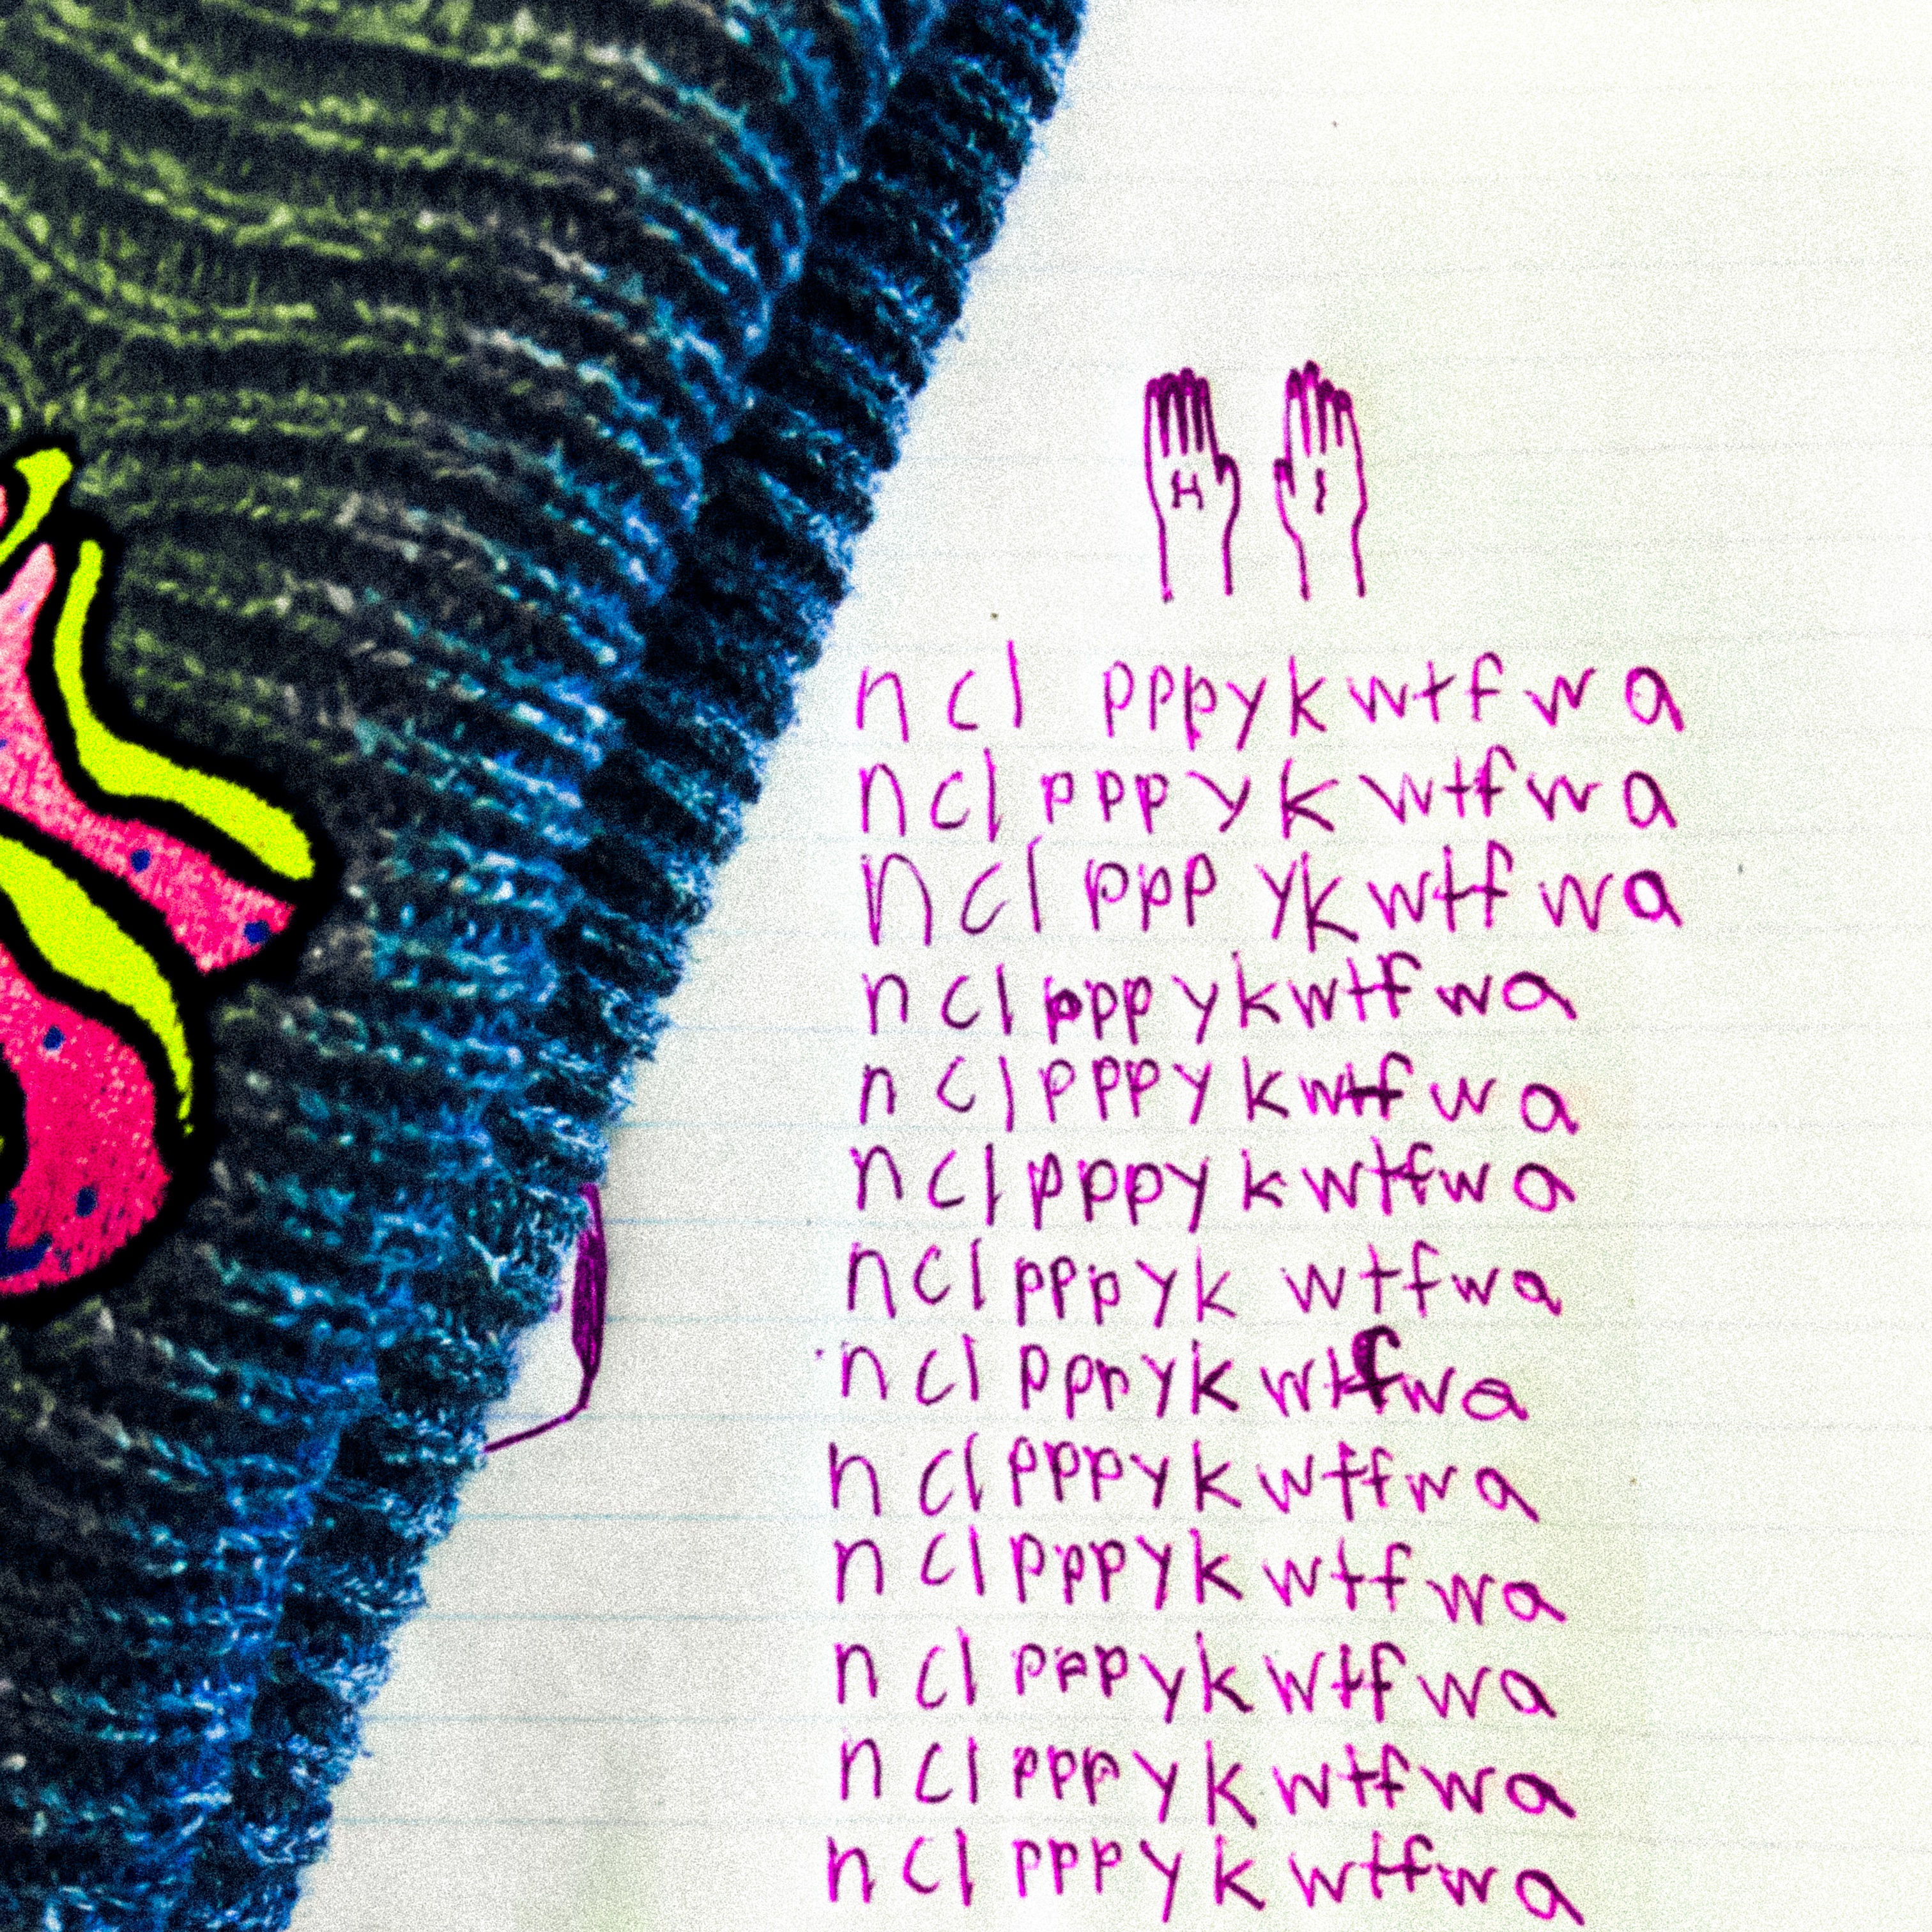 H I
n c l pppykwtfwa
n c l ppp y k wtfwa
n c l ppp yk wtf wa
n c l pppykwtf wa
n c l pppy kwtf w a
n c l pppy k wtfwa
n c l pppyk wtfwa
n c l ppnyk wtfwa
n c l pppyk wtfwa
n c l pppyk wtf wa
n c l pppyk wtf wa
n c l pppyk wtfwa
n c l pppyk wtfwa